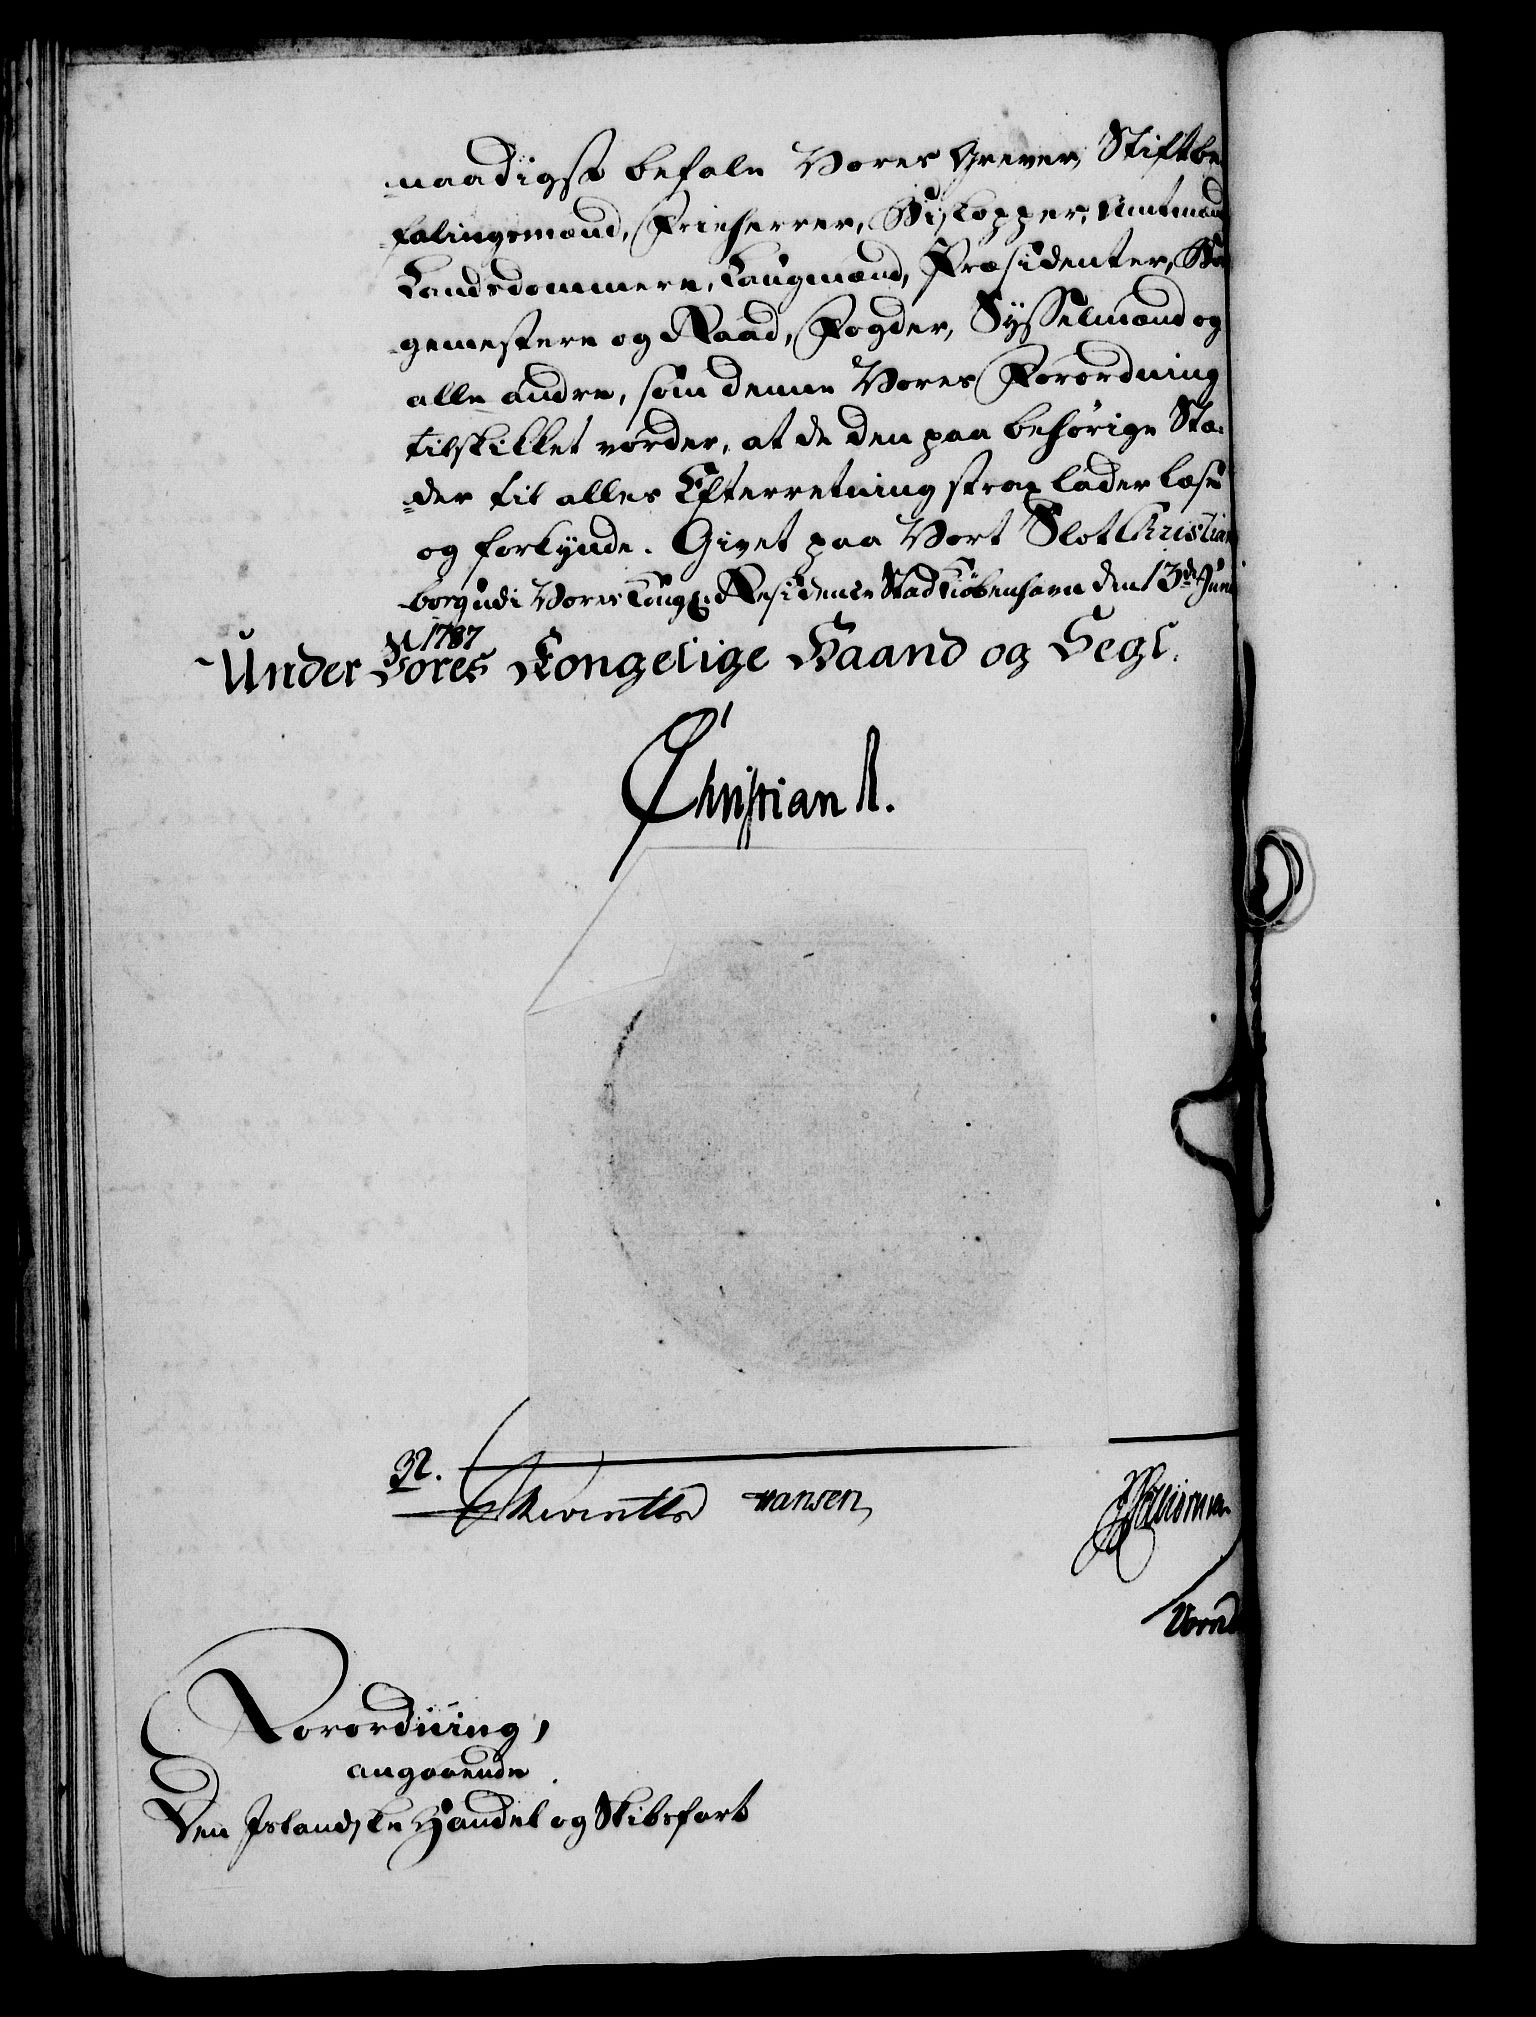 naadigst befale Vores Grever, Stiftbe
falingsmænd, Friherrer, Biskopper, Amtmænd
Landsdommere, Laugmænd, Præsidenter, Bor
gemestere og Raad, Fogder, Sysselmænd og
alle andre, som denne Vores Forordning
tilskikket vorder, at de den paa behørige Stæ-
der til alles Efterretning strax lader læse
og forkynde. Givet paa Vort Slot Christian
borg udi Vores Kongel. Residence Stad Kiøbenhavn den 13de Juni
1787
Under Vores Kongelige Haand og Segl.
Christian R.
32.
Hansen
Forordning,
angaaende
Den Islandske Handel og Skibsfart